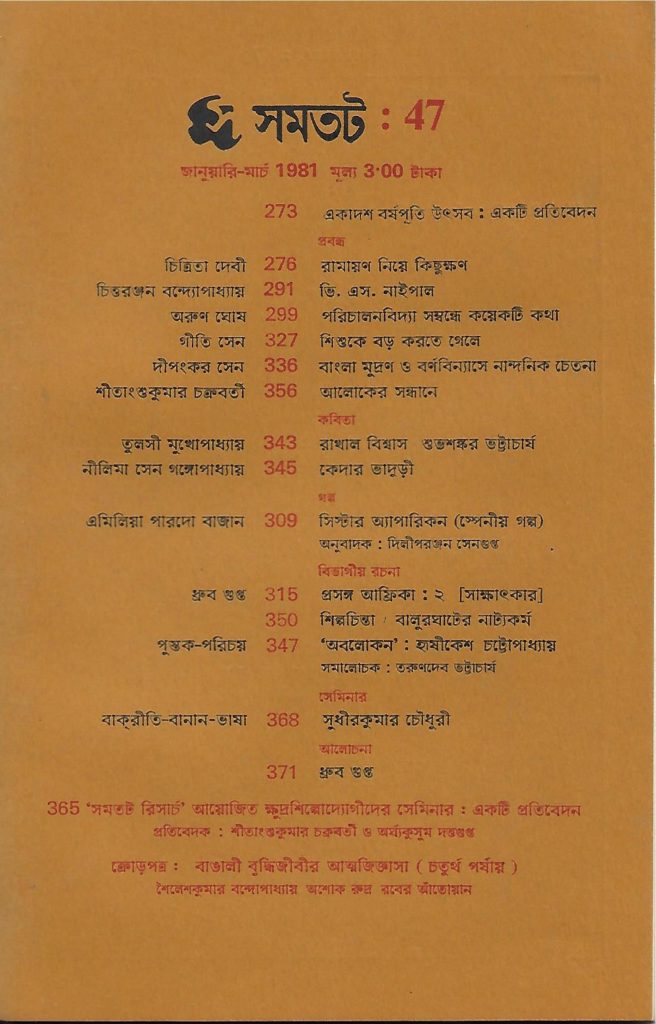 সমতট : 47
জানুয়ারি-মার্চ 1981 মূল্য 3·00 টাকা
273 একাদশ বর্ষপূর্তি উৎসব : একটি প্রতিবেদন
প্রবন্ধ
চিত্রিতা দেবী 276 রামায়ণ নিয়ে কিছুক্ষণ
চিত্তরঞ্জন বন্দ্যোপাধ্যায় 291 ভি. এস. নাইপাল
অরুণ ঘোষ 299 পরিচালনবিদ্যা সম্বন্ধে কয়েকটি কথা
গীতি সেন 327 শিশুকে বড় করতে গেলে
দীপংকর সেন 336 বাংলা মুদ্রণ ও বর্ণবিন্যাসে নান্দনিক চেতনা
শীতাংশুকুমার চক্রবর্তী 356 আলোকের সন্ধানে
কবিতা
তুলসী মুখোপাধ্যায় 343 রাখাল বিশ্বাস শুভশঙ্কর ভট্টাচার্য
নীলিমা সেন গঙ্গোপাধ্যায় 345 কেদার ভাদুড়ী
গল্প
এমিলিয়া পারদো বাজান 309 সিস্টার অ্যাপারিকন (স্পেনীয় গল্প)
অনুবাদক : দিলীপরঞ্জন সেনগুপ্ত
বিভাগীয় রচনা
ধ্রুব গুপ্ত 315 প্রসঙ্গ আফ্রিকা : ২ [সাক্ষাৎকার]
350 শিল্পচিন্তা / বালুরঘাটের নাট্যকর্ম
পুস্তক-পরিচয় 347 ‘অবলোকন’ : হৃষীকেশ চট্টোপাধ্যায়
সমালোচক : তরুণদেব ভট্টাচার্য
সেমিনার
বাক্‌রীতি-বানান-ভাষা 368 সুধীরকুমার চৌধুরী
আলোচনা
371 ধ্রুব গুপ্ত
365 ‘সমতট রিসার্চ’ আয়োজিত ক্ষুদ্রশিল্পোদ্যোগীদের সেমিনার : একটি প্রতিবেদন
প্রতিবেদক : শীতাংশুকুমার চক্রবর্তী ও অর্ঘ্যকুসুম দত্তগুপ্ত
ক্রোড়পত্র : বাঙালী বুদ্ধিজীবীর আত্মজিজ্ঞাসা ( চতুর্থ পর্যায় )
শৈলেশকুমার বন্দোপাধ্যায় অশোক রুদ্র রবের আঁতোয়ান